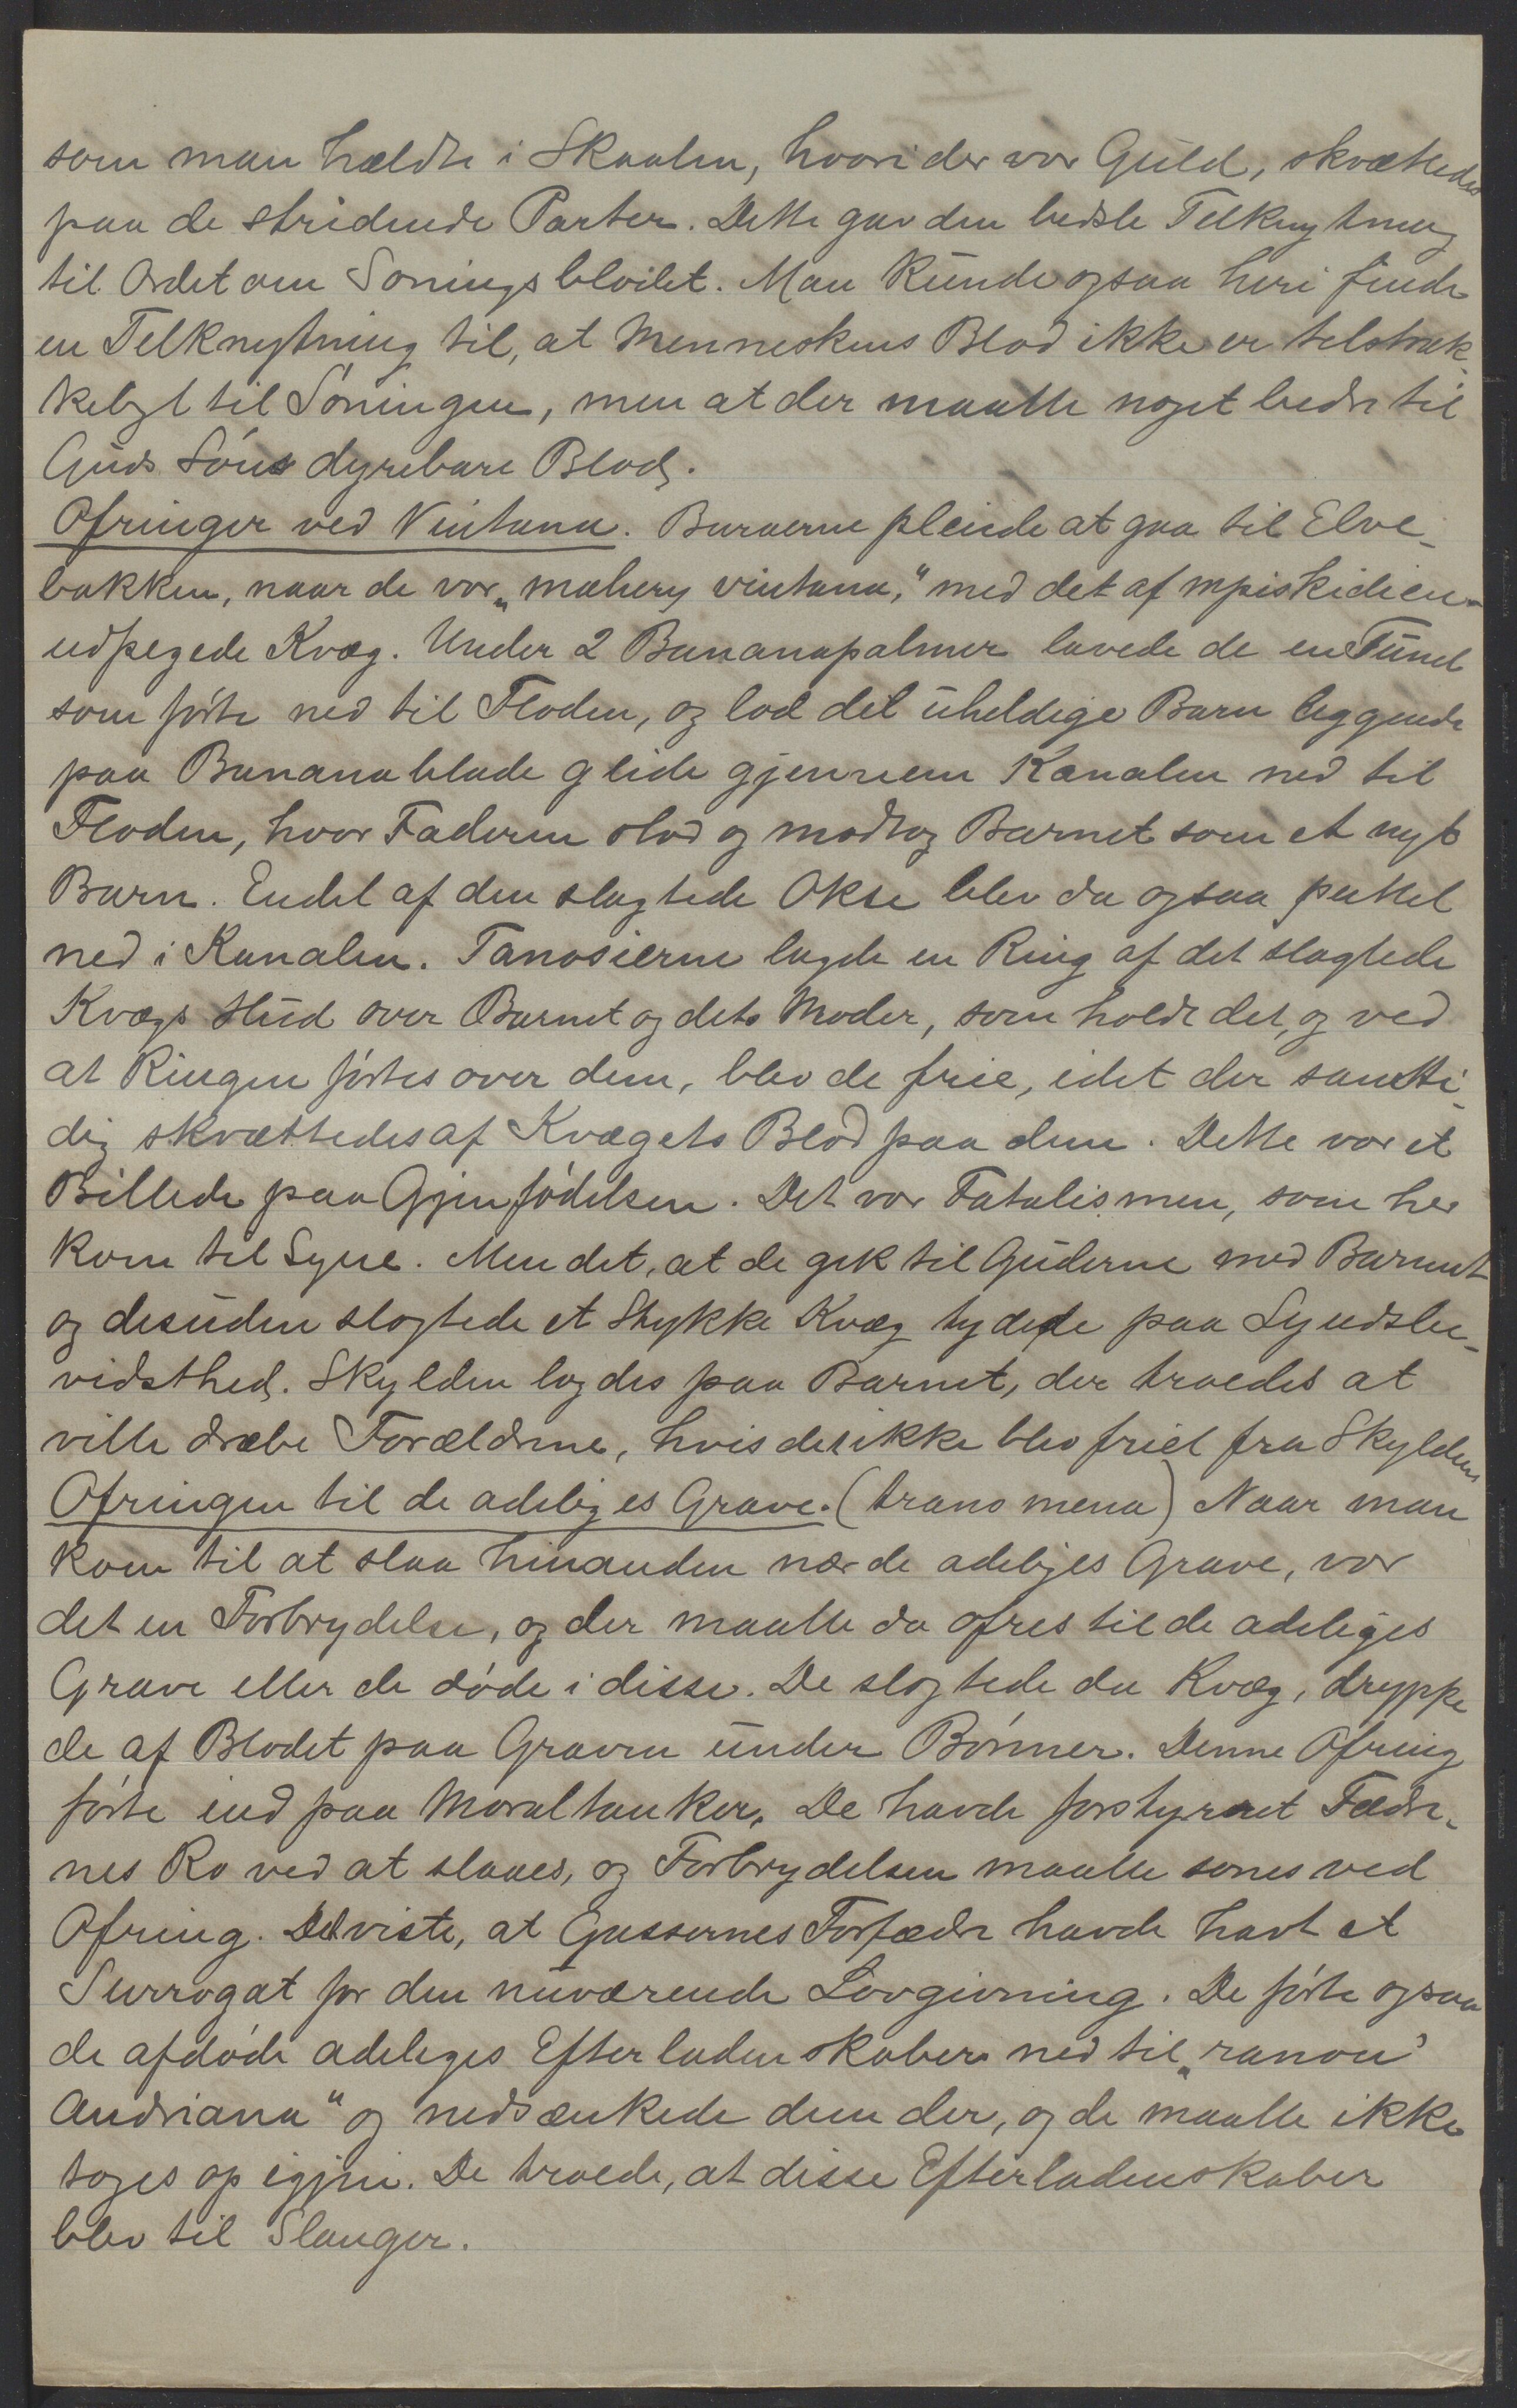 som man hældte i Skaalen, hvori der var Guld, skvættedes
paa de stridende Parter. Dette gav den bedste Tilknytning
til Ordet om Soningsblodet. Man kunde ogsaa heri finde
en Tilknytning til, at Menneskens Blod ikke er tilstræk-
keligt til Soningen, men at der maatte noget bedre til
Guds Søns dyrebare Blod.
Ofringer ved Vintana. Baraerne pleiede at gaa til Elve-
bakken, naar de var „mahery vintana," med det af mpiskidien
udpegede Kvæg. Under 2 Bananapalmer lavede de en Tunel
som førte ned til Floden, og lod det uheldige Barn liggende
paa Bananablade glide gjennem Kanalen ned til
Floden, hvor Faderen stod og modtog Barnet som et nyt
Barn. Endel af den slagtede Okse blev da ogsaa puttet
ned i Kanalen. Tanosierne lagde en Ring af det slagtede
Kvægs Hud over Barnet og dets Moder, som holdt det, og ved
at Ringen førtes over dem, blev de frie, idet der samtti-
dig skvættedes af Kvægets Blod paa dem. Dette var et
Billede paa Gjenfødelsen. Det var Fatalismen, som her
kom til Syne. Men det, at de gik til Guderne med Barnet
og desuden slagtede et Stykke Kvæg tydede paa Syndsbe-
vidsthed. Skylden lagdes paa Barnet, der troedes at
ville dræbe Forældrene, hvis det ikke blev friet fra Skylden
Ofringen til de adeliges Grave. (trano mena) Naar man
kom til at slaa hinanden nær de adeliges Grave, var
det en Forbrydelse, og der maatte da ofres til de adeliges
Grave eller de døde i disse. De slagtede da Kvæg, dryppe
de af Blodet paa Graven under Bønner. Denne Ofring
førte ind paa Moraltanker. De havde forstyrret Fædre-
nes Ro ved at slaaes, og Forbrydelsen maatte sones ved
Ofring. Det viste, at Gassernes Forfædre havde havt et
Surrogat for den nuværende Lovgivning. De førte ogsaa
de afdøde adeliges Efterladenskaber ned til „ranon'
Andriana" og nedsænkede dem der, og de maatte ikke
tages op igjen. De troede, at disse Efterladenskaber
blev til Slanger.